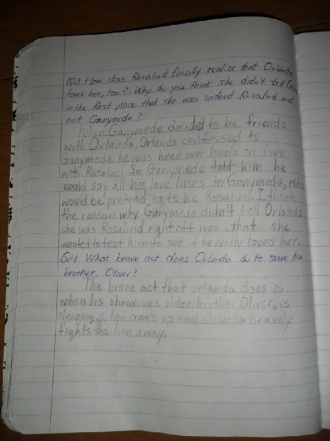 Q13. How does Rosalind finally realize that Orlando
loves her, too? Why do you think she didn't tell
in the first place that she was indeed Rosalind and
not Ganymede?
When Ganymede decided to be friends
with Orlando, Orlando confessed to
Ganymede he was head over heels in love
with Rosalind. So Ganymede told him he
could say all his love lines to Ganymede, who
would be pretending to be Rosalind. I think
the reason why Ganymede didn't tell Orlando
she was Rosalind right off was that she
wanted to test him to see if he really loved her.
Q14. What brave act does Orlando do to save his
brother, Oliver?
The brave act that orlando does is
when his obnoxious older brother Oliver, is
sleeping a lion comes and Orlando bravely
fights the lion away.